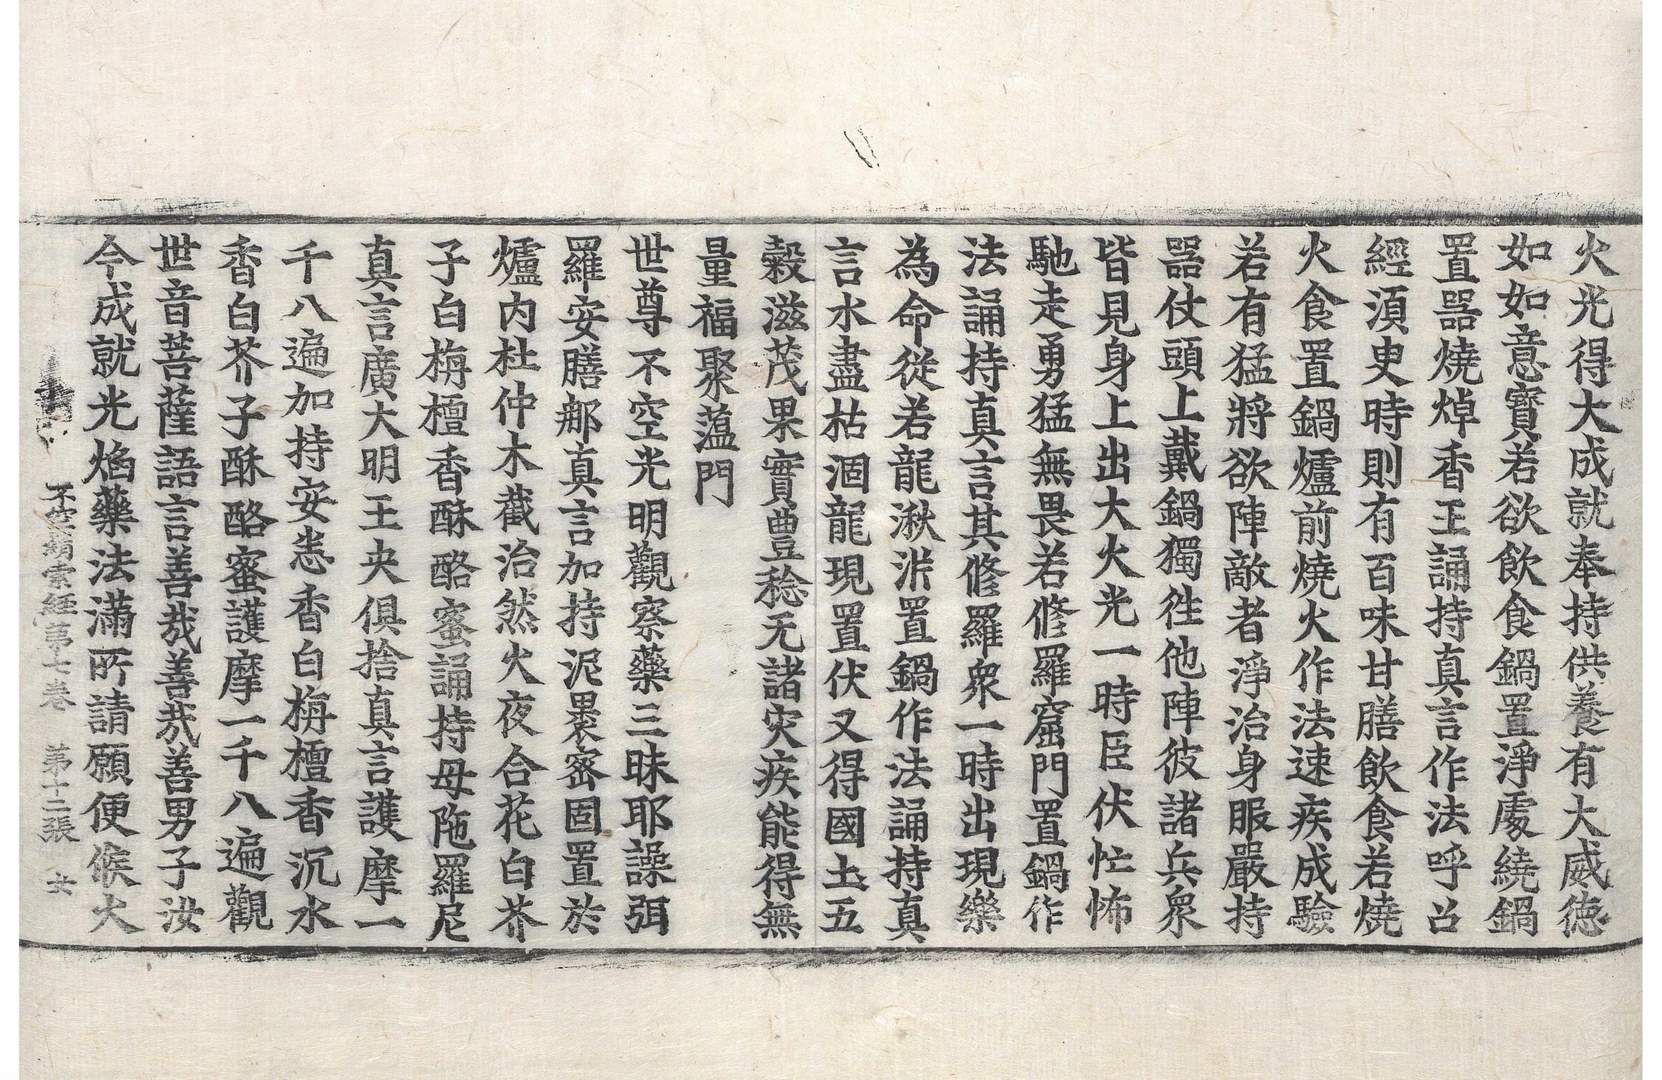 火光得大成就奉持供養有大威徳
如如意寶若欲飲食鍋置淨處繞鍋
置器燒焯香王誦持真言作法呼召
經湏臾時則有百味甘膳飲食若燒
火食置鍋爐前燒火作法速疾成驗
若有猛將欲陣敵者淨治身服嚴持
器仗頭上戴鍋獨往他陣彼諸兵衆
皆見身上出大火光一時臣伏忙怖
馳走勇猛無畏若修羅窟門置鍋作
法誦持真言其修羅衆一時出現樂
為命從若龍湫泮置鍋作法誦持真
言水盡枯涸龍現置伏又得國土五
穀滋茂果實豊稔无諸灾疾能得無
量福聚蘊門
世尊不空光明觀察藥三昧耶譟弭
羅安膳那真言加持泥褁密固置於
爐内杜仲木截治然火夜合花白芥
子白栴檀香酥酪蜜誦持母陁羅尼
真言廣大明王央俱捨真言護摩一
千八遍加持安悉香白栴檀香沉水
香白芥子酥酪蜜護摩一千八遍觀
世音菩薩語言善㢤善㢤善男子汝
今成就光焰藥法滿所請願便候火
不空羂索經第七卷　第十二張　女